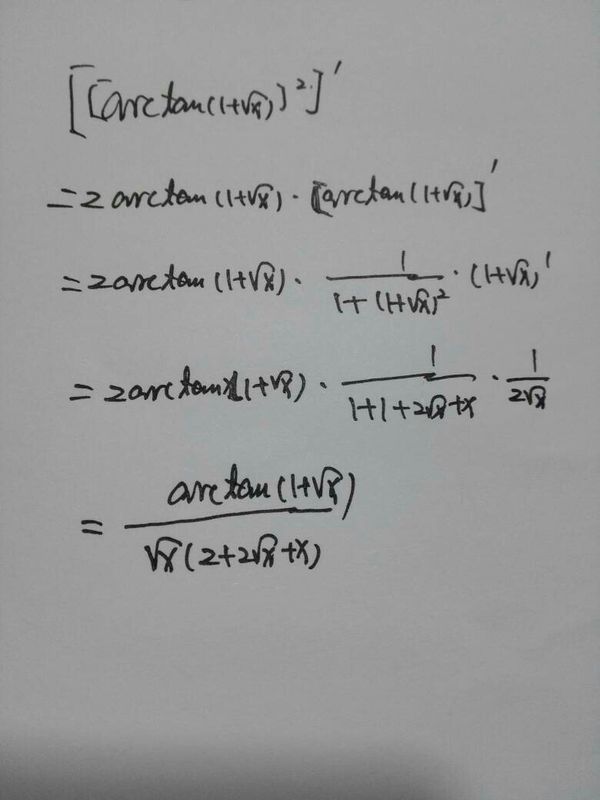 [[arctan(1+√x)]²]'
=2arctan(1+√x)·[arctan(1+√x)]'
=2arctan(1+√x)·1/(1+(1+√x)²)·(1+√x)'
=2arctan(1+√x)·1/(1+1+2√x+x)·1/(2√x)
=arctan(1+√x)/(√x(2+2√x+x))